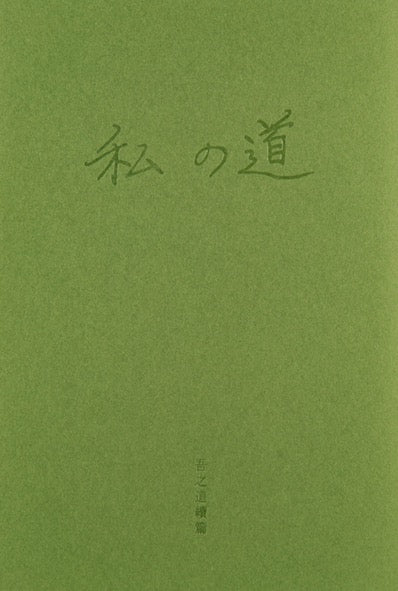 私の道
吾之道續篇